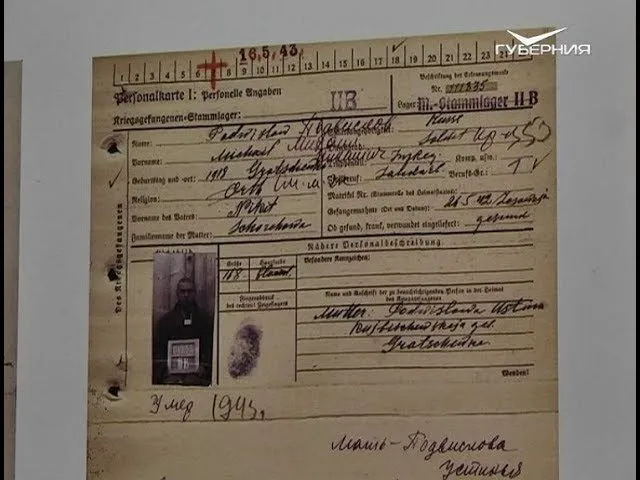 ГУБЕРНИЯ
16.5.43.
1 2 3 4 5 6 7 8 9 10 11 12 13 14 15 16 17 18 19 20 21 22 23 24 25
Personalkarte I: Personelle Angaben
Kriegsgefangenen-Stammlager:
II B
Beschriftung der Erkennungsmarke
Nr. 111835
Lager: M.-Stammlager II B
Des Kriegsgefangenen
Name: Podwislow Подвислов
Vorname: Michael Михаил
Geburtstag und -ort: 1918 Gratschewka
Religion: Orth
Vorname des Vaters: Nikit
Familienname der Mutter:
Russe
Soldat
Komp. usw.
Beruf-Gr.:
Matrikel Nr. (Stammrolle des Heimatstaates)
Gefangennahme (Ort und Datum):
Ob gesund, krank, verwundet eingeliefert: gesund
Nähere Personalbeschreibung
Größe Haarfarbe
168 blond
Besondere Kennzeichen:
Fingerabdruck
des rechten! Zeigefingers
Name und Anschrift der zu benachrichtigenden Person in der Heimat
des Kriegsgefangenen
Mutter: Podwislowa Ustina
Kujbischewskaja geb.
Gratschewka
Wenden!
Умер 1943г.
Мать-Подвислова
Устинья